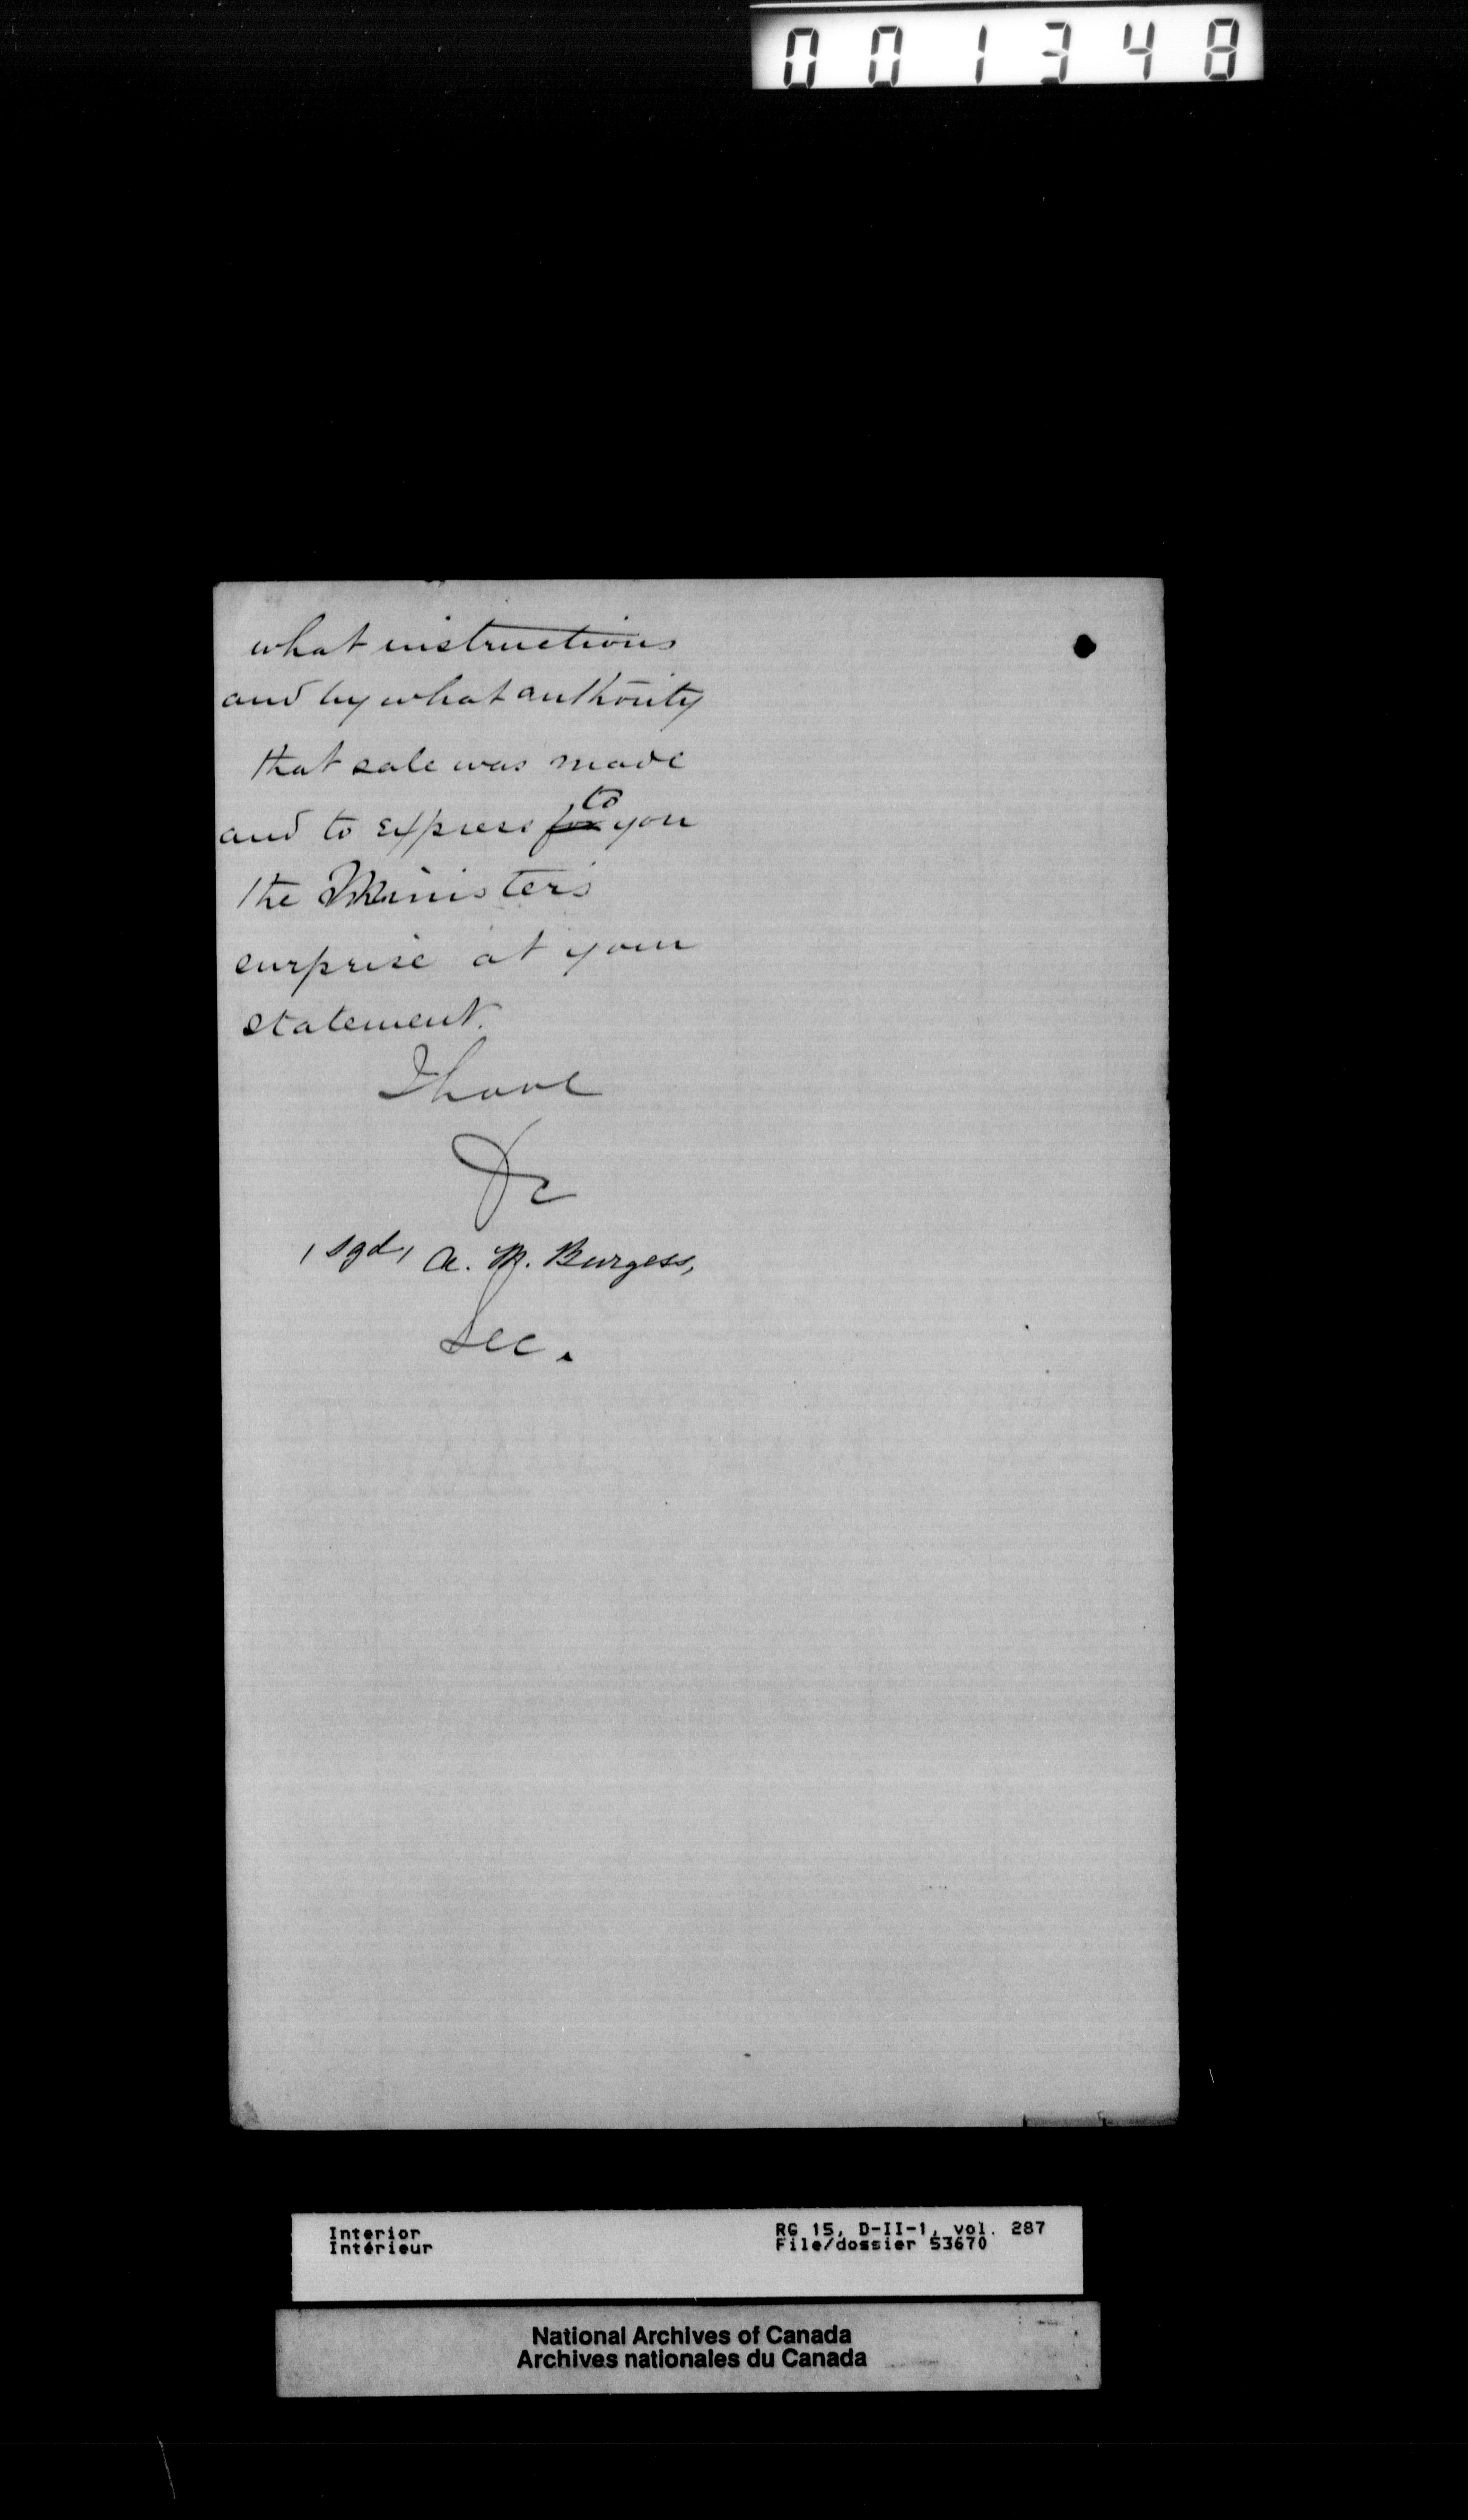 001348
what instructions
and by what authority
that sale was made
and to express for to you
the Ministers
surprise at your
statement.
I have
&c
(sgd) A. M. Burgess,
Sec.
Interior
Intérieur
RG 15, D-II-1, vol. 287
File/dossier 53670
National Archives of Canada
Archives nationales du Canada